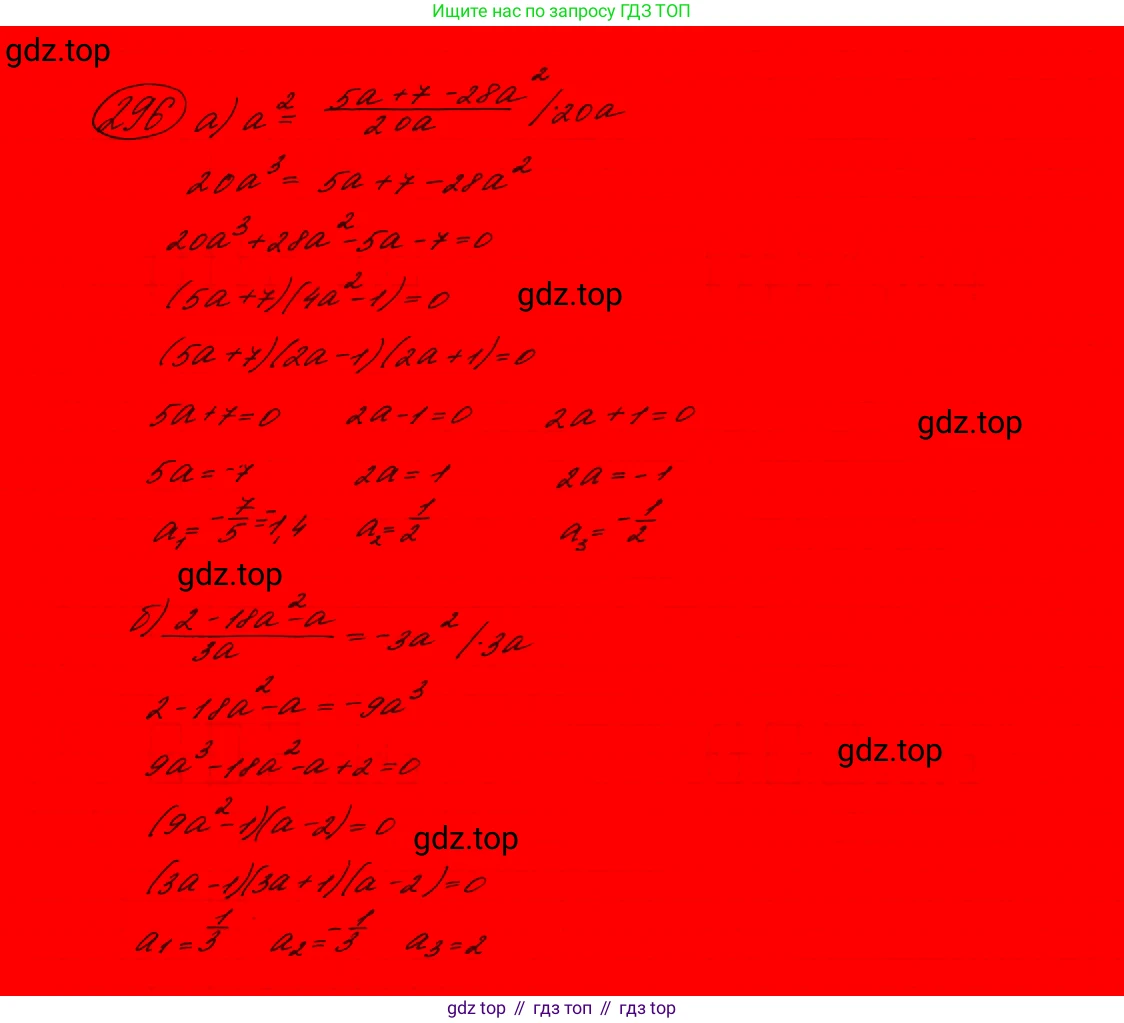 Ищите нас по запросу ГДЗ ТОП
gdz.top
296 а) a² = (5a + 7 - 28a²)/(20a) /·20a
20a³ = 5a + 7 - 28a²
20a³ + 28a² - 5a - 7 = 0
(5a + 7)(4a² - 1) = 0
gdz.top
(5a + 7)(2a - 1)(2a + 1) = 0
5a + 7 = 0 2a - 1 = 0 2a + 1 = 0
gdz.top
5a = -7 2a = 1 2a = -1
a₁ = -7/5 = -1,4 a₂ = 1/2 a₃ = -1/2
gdz.top
б) (2 - 18a² - a)/(3a) = -3a² /·3a
2 - 18a² - a = -9a³
gdz.top
9a³ - 18a² - a + 2 = 0
(9a² - 1)(a - 2) = 0
gdz.top
(3a - 1)(3a + 1)(a - 2) = 0
a₁ = 1/3 a₂ = -1/3 a₃ = 2
gdz top // гдз топ // gdz top